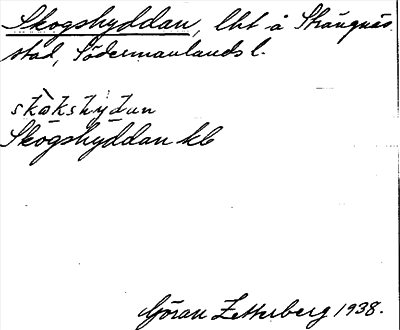 Skogshyddan, lht å Strängnäs
stad, Södermanlands l.
skòkshydun
Skogshyddan kb
Göran Zetterberg 1938.